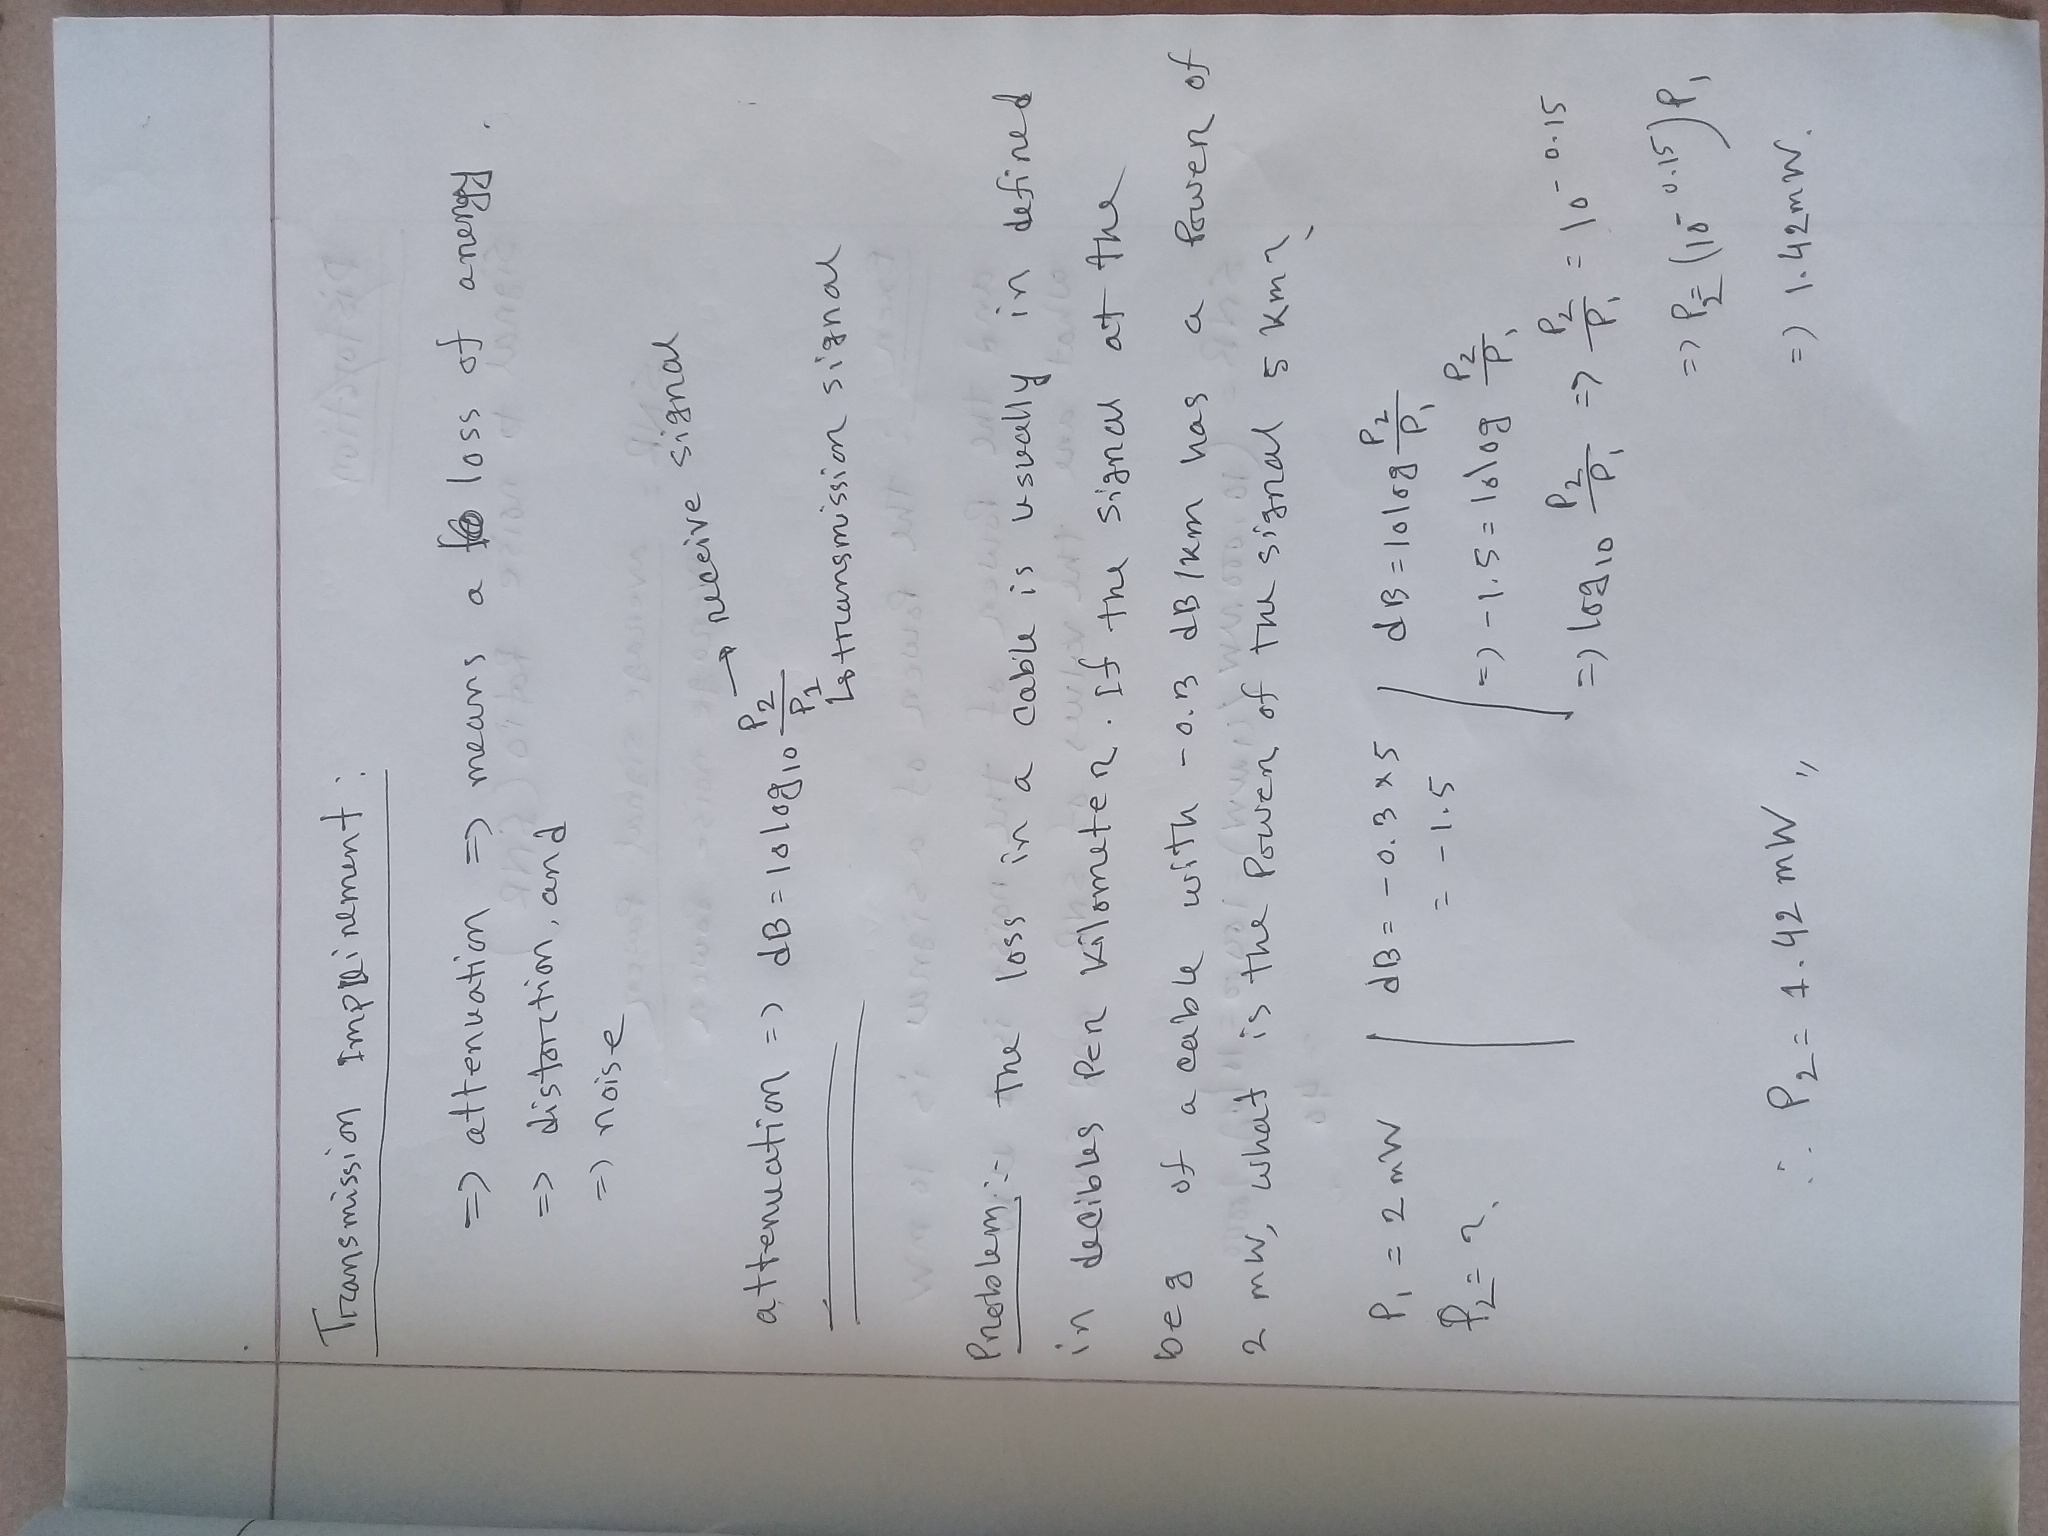 Transmission Impairement :
=> attenuation => means a loss of anengy.
=> distorction, and
=> noise
attenuation => dB = 10 log10 P2/P1
→ receive signal
↳ transmission signal
Problem :- The loss in a cable is usually in defined
in decibles Per Kilometer. If the signal at the
beg of a cable with -0.3 dB/km has a Power of
2 mW, what is the Power of the signal 5 km?
P1 = 2 mW
P2 = ?
dB = -0.3 x 5
= -1.5
dB = 10 log P2/P1
=> -1.5 = 10 log P2/P1
=> log10 P2/P1 => P2/P1 = 10^-0.15
=> P2 = (10^-0.15) P1
=> 1.42 mW.
∴ P2 = 1.42 mW